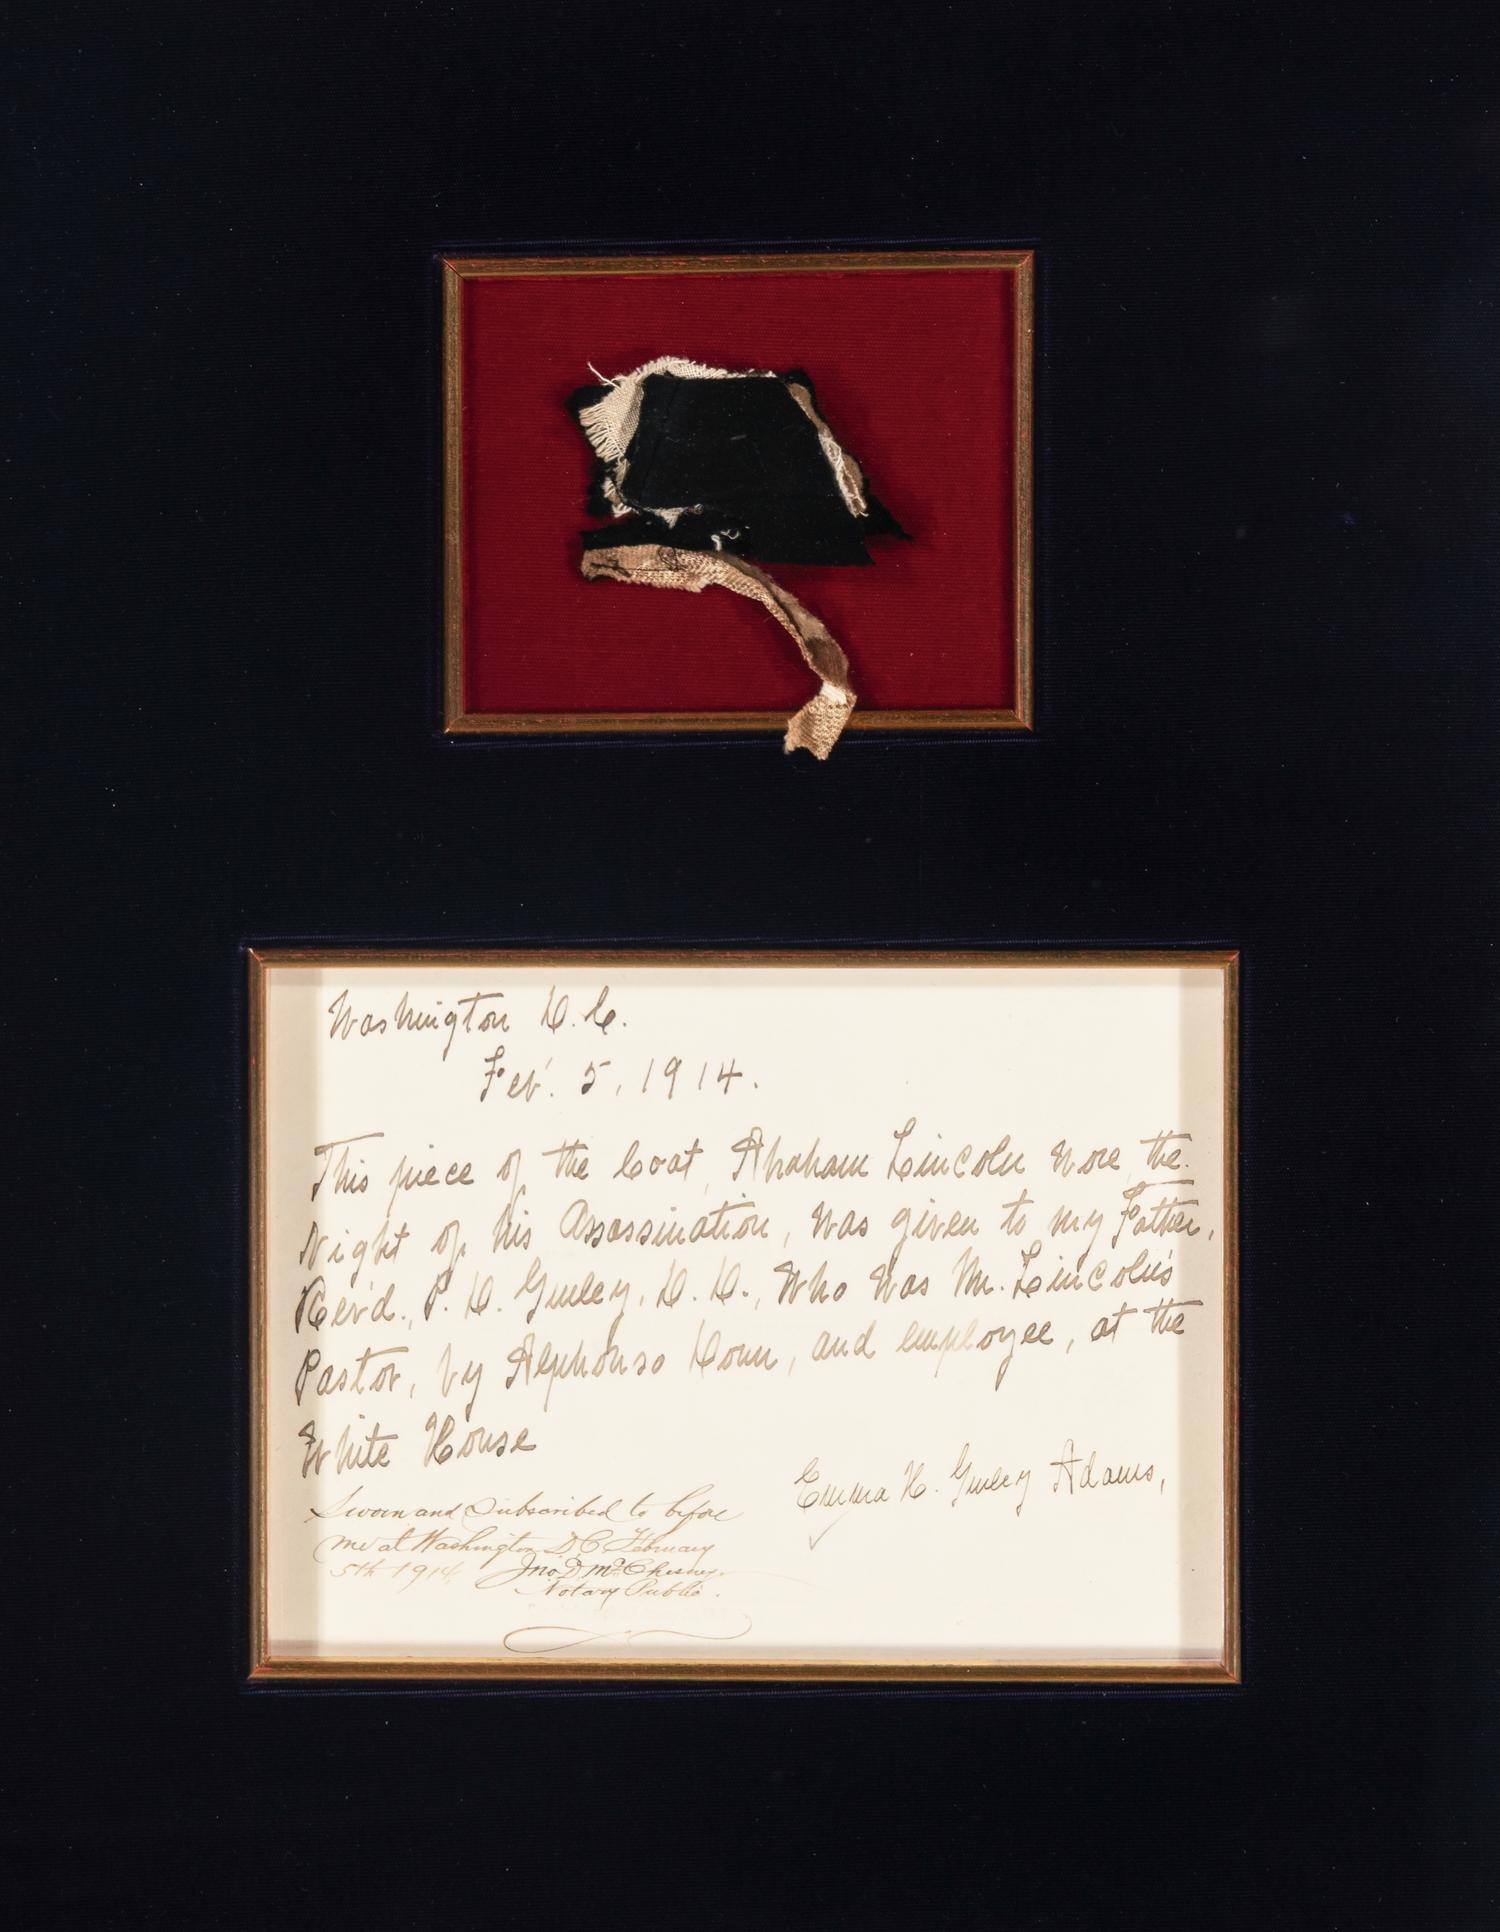 Washington D.C.
Feb'. 5, 1914.
This piece of the Coat, Abraham Lincoln wore, the
Night of his Assassination, was given to my Father,
Rev'd., P. D. Gurley, D. D., who was Mr. Lincoln's
Pastor, by Alphonso Donn, and employee, at the
White House
Emma H. Gurley Adams,
Sworn and Subscribed to before
me at Washington D C February
5th 1914. Jno. D. McChesney.
Notary Public.